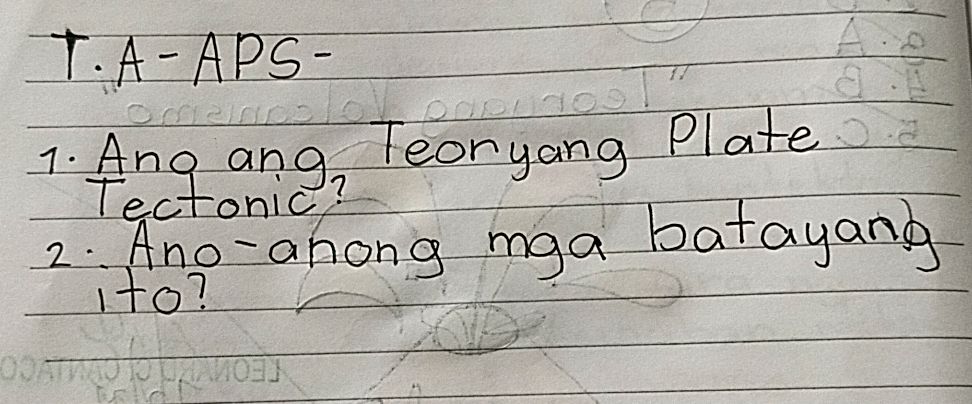 T.A-APS-
1. Ano ang Teoryang Plate
Tectonic?
2. Ano-anong mga batayang
ito?